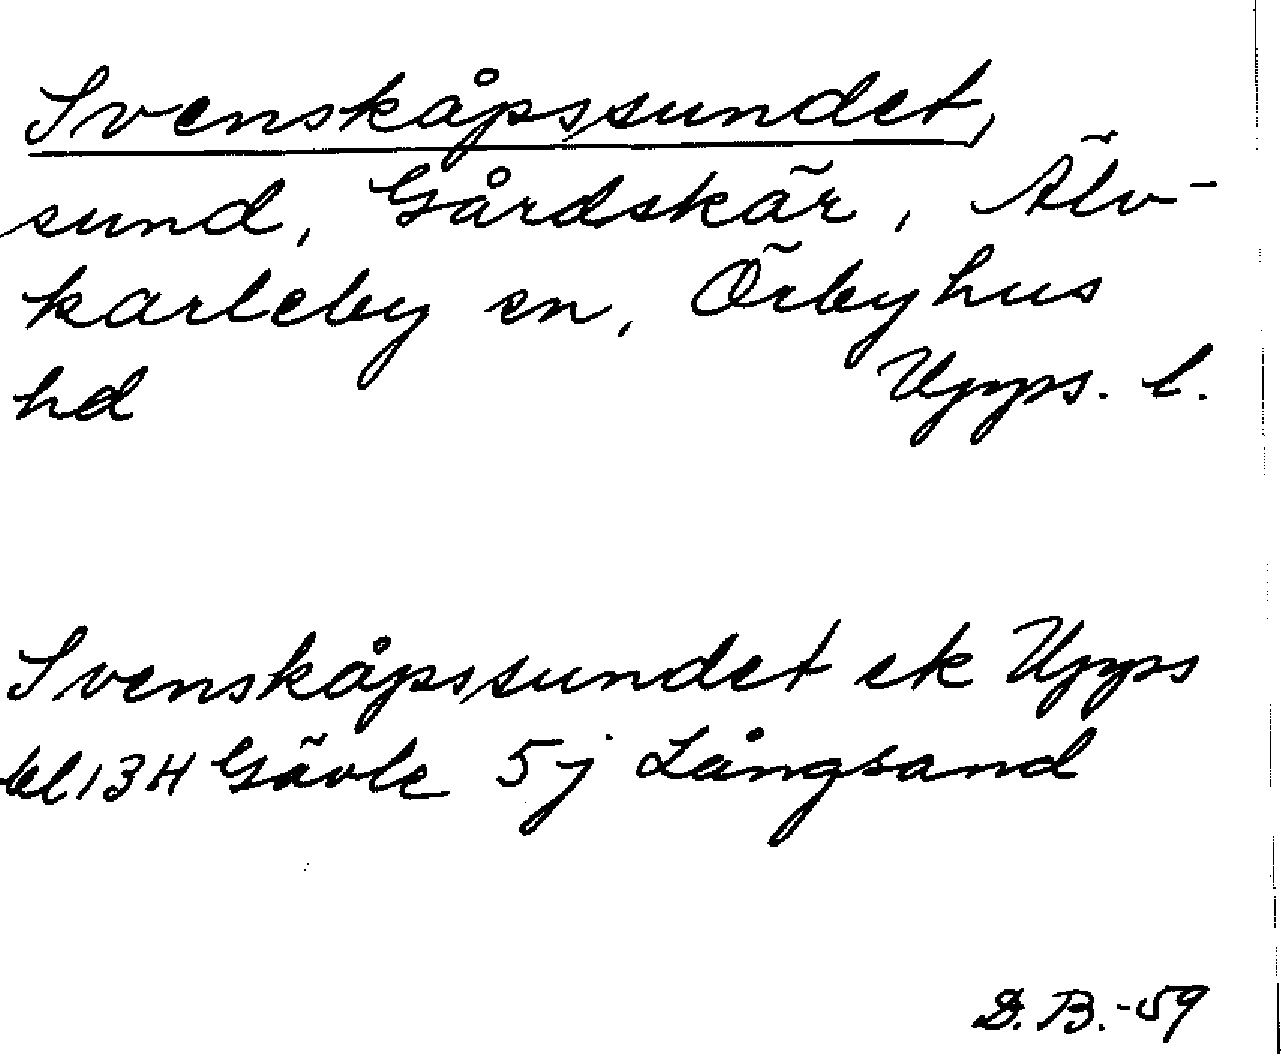 Svenskåpssundet,
sund, Gårdskär, Älv-
karleby sn, Örbyhus
hd Upps. l.
Svenskåpssundet ek Upps
bl 13H Gävle 5j Långsand
D. B. -59